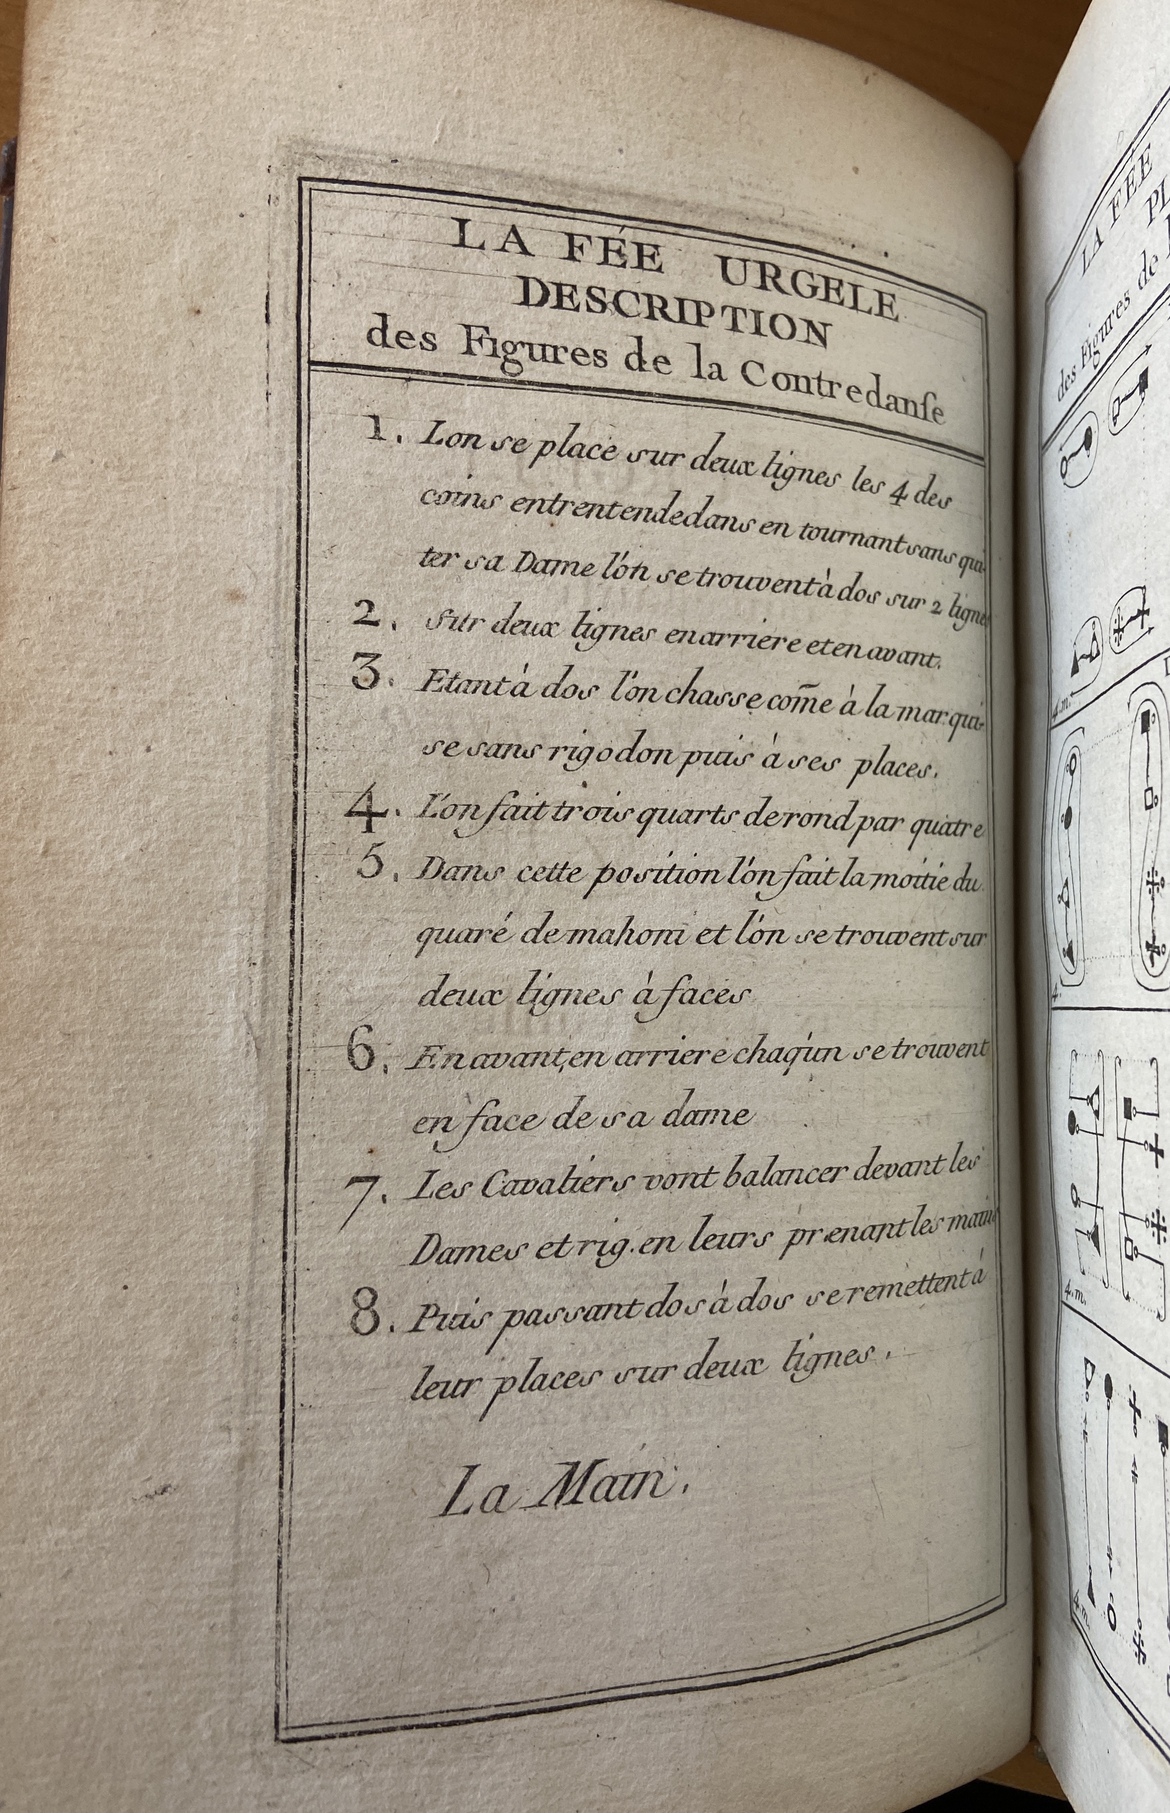 LA FÉE URGELE
DESCRIPTION
des Figures de la Contredanſe
1. Lon se place sur deux lignes les 4 des
coins entrentendedans en tournant sans qui-
ter sa Dame l'ón se trouvent à dos sur 2 lignes
2. Sur deux lignes en arriere et en avant.
3. Etant à dos l'on chasse com̄e à la marqui-
se sans rigodon puis à ses places.
4. L'on fait trois quarts de rond par quatre
5. Dans cette position l'ón fait la moitie du
quaré de mahoni et l'ón se trouvent sur
deux lignes à faces
6. En avant, en arriere chaq'un se trouvent
en face de sa dame
7. Les Cavaliers vont balancer devant les
Dames et rig. en leurs prenant les mains
8. Puis passant dos à dos se remettent à
leur places sur deux lignes.
La Main.
LA FÉE
PL
des Figures de
4.m.
4.
4.m.
4.m.